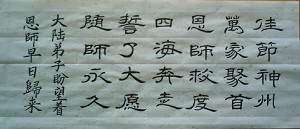 佳節神州
萬家聚首
恩師救度
四海奔走
誓了大愿
随師永久
大陆弟子盼望着
恩師早日歸来